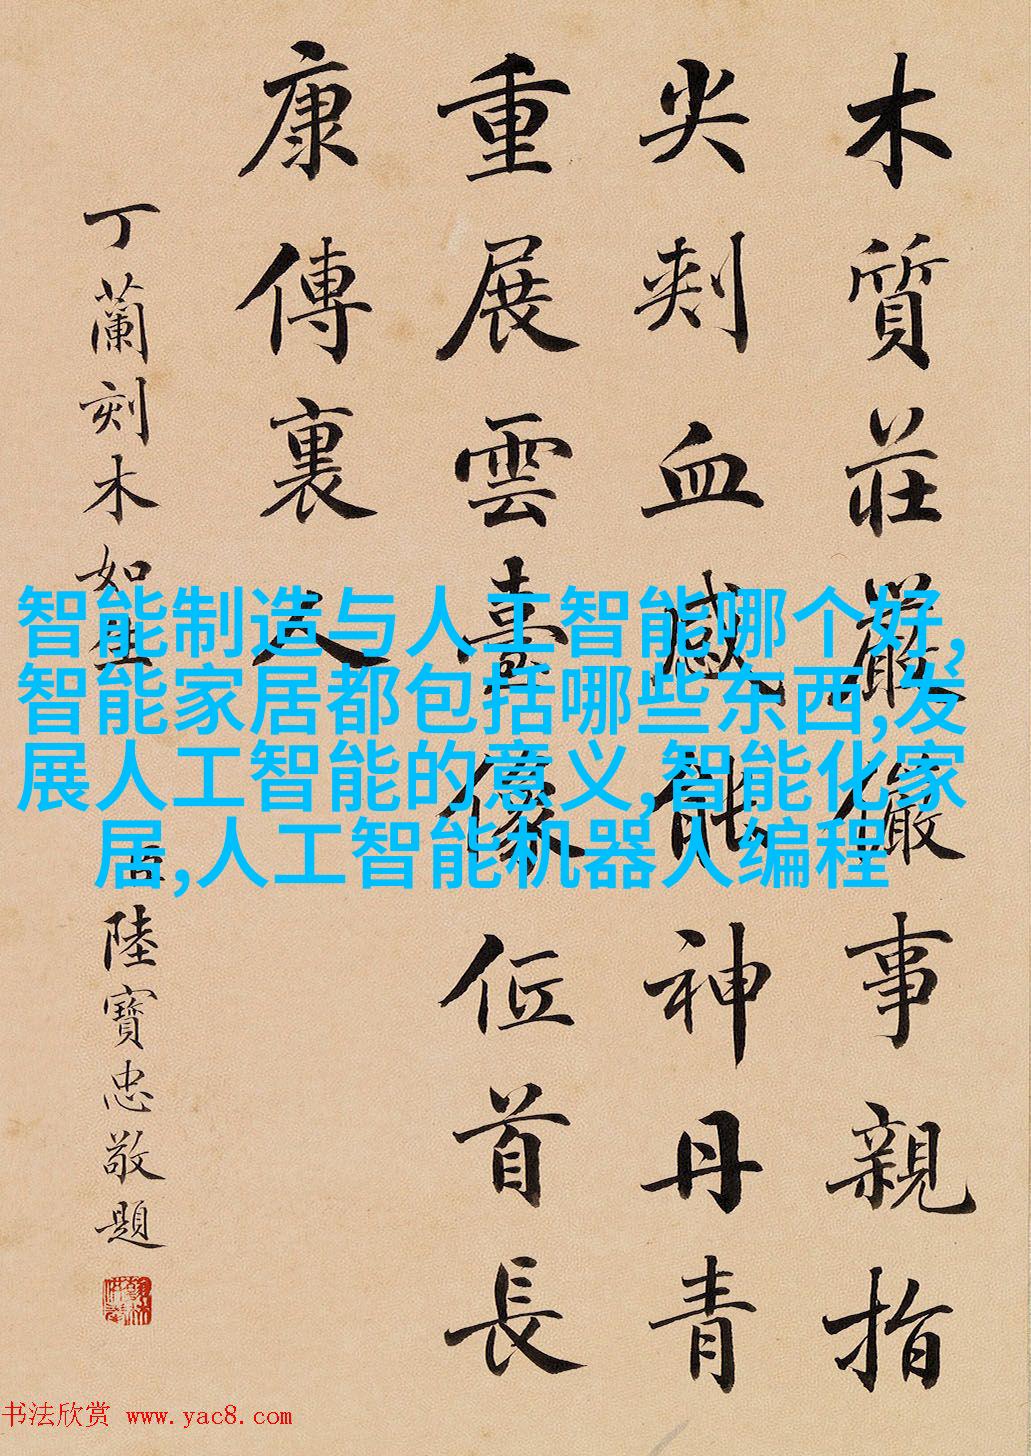 木質莊嚴儼事親指
尖刾血感能神丹青
重展雲臺像位首長
康傳裏人
丁蘭刻木如生
臣陸寶忠敬題
智能制造与人工智能哪个好,
智能家居都包括哪些东西,发
展人工智能的意义,智能化家
居,人工智能机器人编程
书法欣赏 www.yac8.com